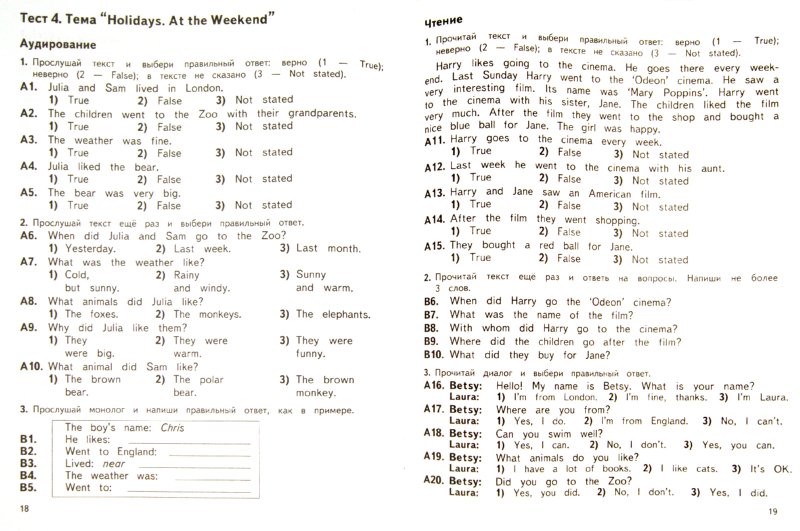 Тест 4. Тема "Holidays. At the Weekend"
Аудирование
1. Прослушай текст и выбери правильный ответ: верно (1 — True);
неверно (2 — False); в тексте не сказано (3 — Not stated).
A1. Julia and Sam lived in London.
1) True 2) False 3) Not stated
A2. The children went to the Zoo with their grandparents.
1) True 2) False 3) Not stated
A3. The weather was fine.
1) True 2) False 3) Not stated
A4. Julia liked the bear.
1) True 2) False 3) Not stated
A5. The bear was very big.
1) True 2) False 3) Not stated
2. Прослушай текст ещё раз и выбери правильный ответ.
A6. When did Julia and Sam go to the Zoo?
1) Yesterday. 2) Last week. 3) Last month.
A7. What was the weather like?
1) Cold, 2) Rainy 3) Sunny
but sunny. and windy. and warm.
A8. What animals did Julia like?
1) The foxes. 2) The monkeys. 3) The elephants.
A9. Why did Julia like them?
1) They 2) They were 3) They were
were big. warm. funny.
A10. What animal did Sam like?
1) The brown 2) The polar 3) The brown
bear. bear. monkey.
3. Прослушай монолог и напиши правильный ответ, как в примере.
The boy's name: Chris
B1. He likes:
B2. Went to England:
B3. Lived: near
B4. The weather was:
B5. Went to:
18
Чтение
1. Прочитай текст и выбери правильный ответ: верно (1 — True);
неверно (2 — False); в тексте не сказано (3 — Not stated).
Harry likes going to the cinema. He goes there every week-
end. Last Sunday Harry went to the 'Odeon' cinema. He saw a
very interesting film. Its name was 'Mary Poppins'. Harry went
to the cinema with his sister, Jane. The children liked the film
very much. After the film they went to the shop and bought a
nice blue ball for Jane. The girl was happy.
A11. Harry goes to the cinema every week.
1) True 2) False 3) Not stated
A12. Last week he went to the cinema with his aunt.
1) True 2) False 3) Not stated
A13. Harry and Jane saw an American film.
1) True 2) False 3) Not stated
A14. After the film they went shopping.
1) True 2) False 3) Not stated
A15. They bought a red ball for Jane.
1) True 2) False 3) Not stated
2. Прочитай текст ещё раз и ответь на вопросы. Напиши не более
3 слов.
B6. When did Harry go the 'Odeon' cinema?
B7. What was the name of the film?
B8. With whom did Harry go to the cinema?
B9. Where did the children go after the film?
B10. What did they buy for Jane?
3. Прочитай диалог и выбери правильный ответ.
A16. Betsy: Hello! My name is Betsy. What is your name?
Laura: 1) I'm from London. 2) I'm fine, thanks. 3) I'm Laura.
A17. Betsy: Where are you from?
Laura: 1) Yes, I do. 2) I'm from England. 3) No, I can't.
A18. Betsy: Can you swim well?
Laura: 1) Yes, I can. 2) No, I don't. 3) Yes, you can.
A19. Betsy: What animals do you like?
Laura: 1) I have a lot of books. 2) I like cats. 3) It's OK.
A20. Betsy: Did you go to the Zoo?
Laura: 1) Yes, you did. 2) No, I don't. 3) Yes, I did.
19